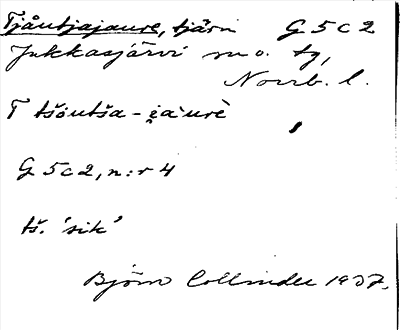 Tjåutjajaure, tjärn G 5 c 2
Jukkasjärvi sn o. tg,
Norrb. l.
T tšŏutša-i̯a`urè
G 5 c 2, n:r 4
tš. 'sik'
Björn Collinder 1937.